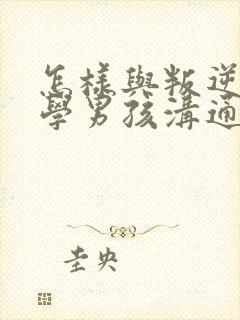 怎樣與叛逆
學男孩溝通
圭央